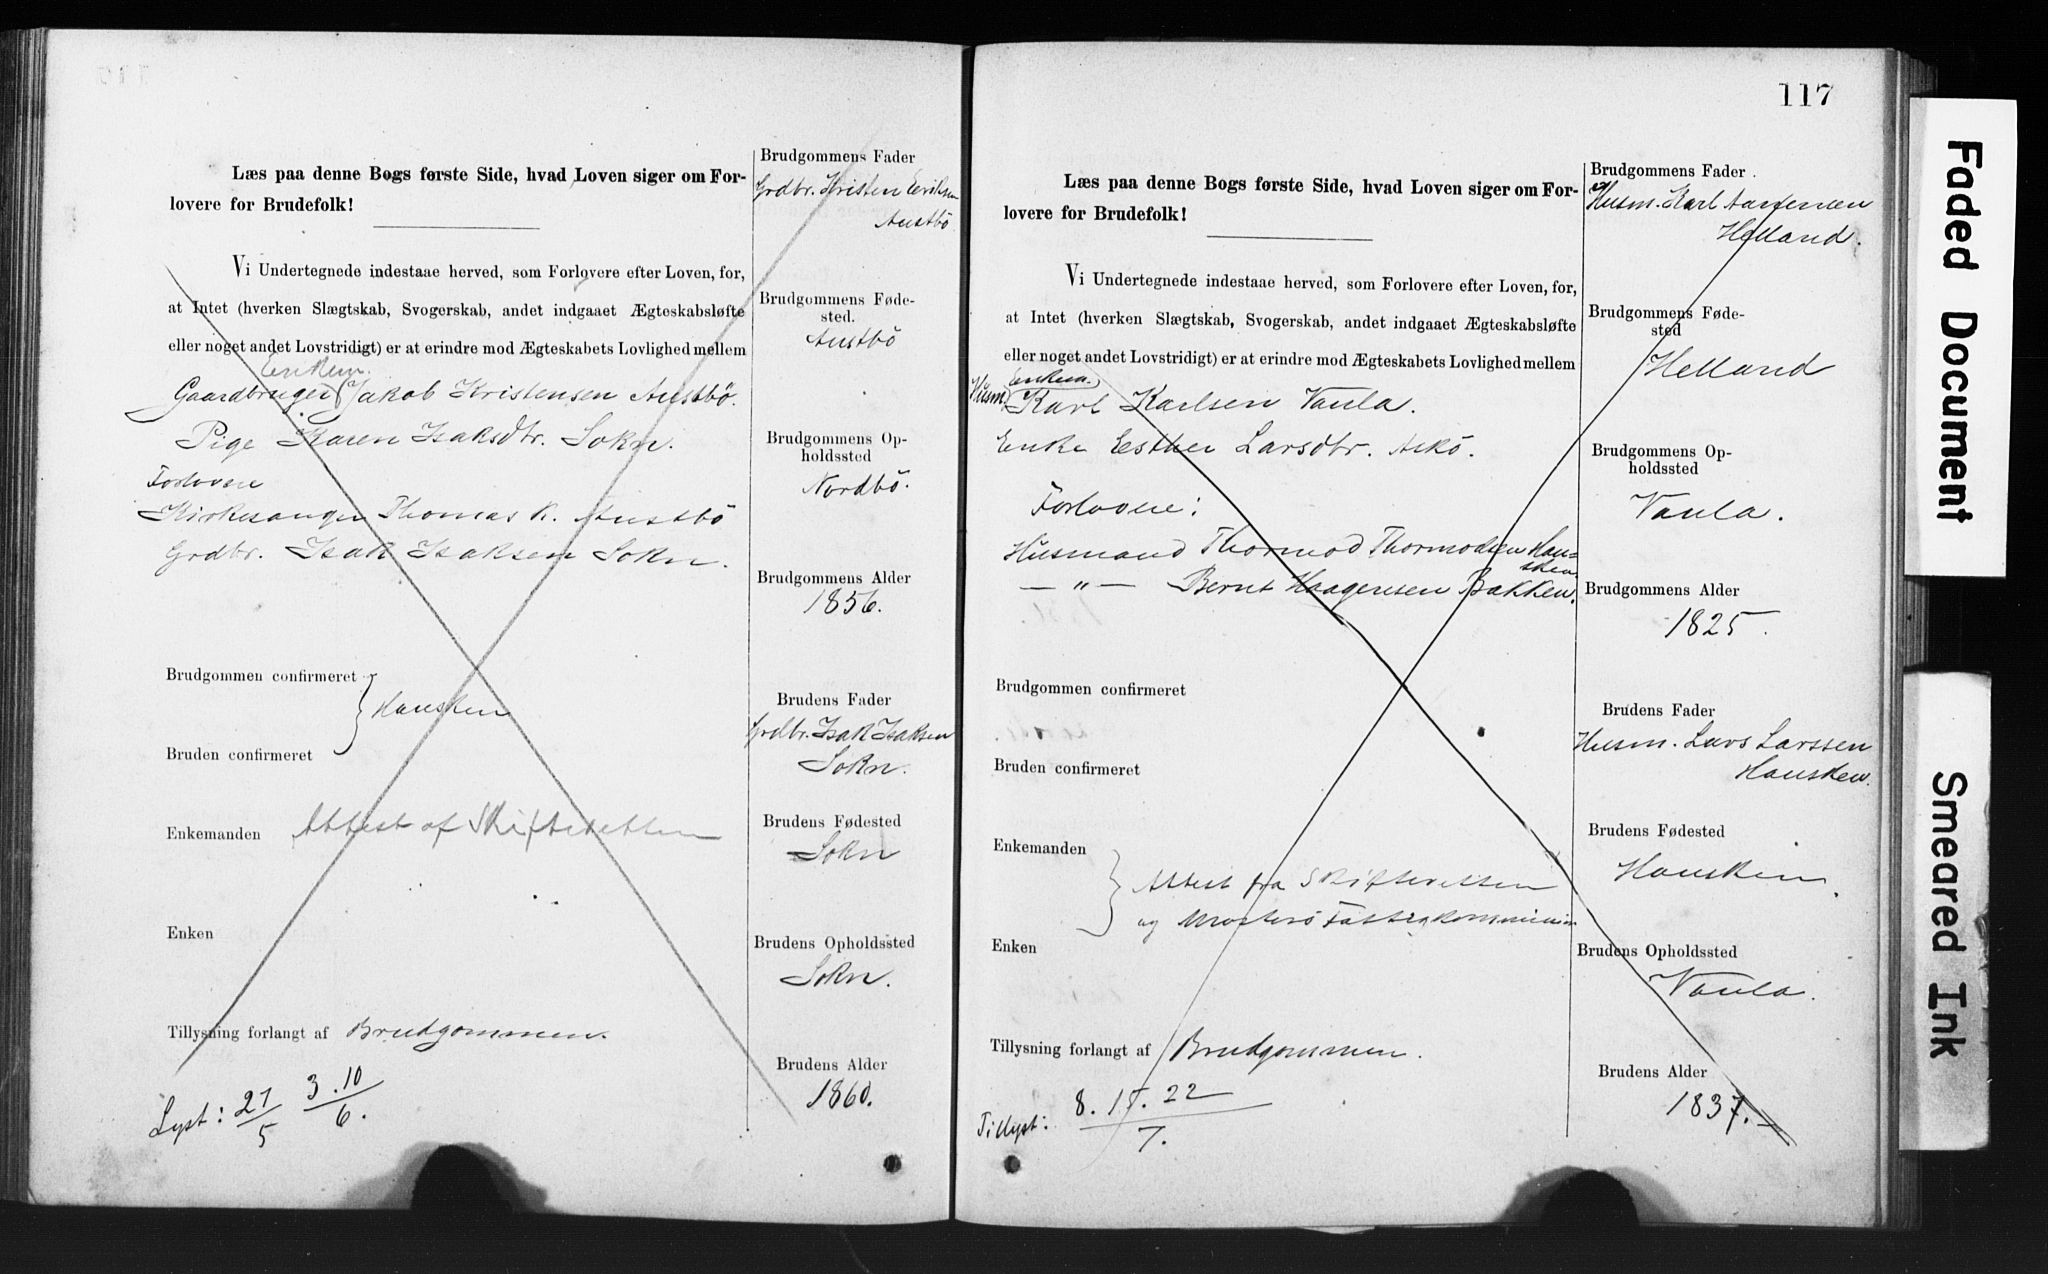 Læs paa denne Bogs første Side, hvad Loven siger om For-
lovere for Brudefolk!
Vi Undertegnede indestaae herved, som Forlovere efter Loven, for,
at Intet (hverken Slægtskab, Svogerskab, andet indgaaet Ægteskabsløfte
eller noget andet Lovstridigt) er at erindre mod Ægteskabets Lovlighed mellem
Enkem.
Gaardbruger Jakob Kristensen Austbö.
Pige Karen Isaksdtr. Sokn.
Forlovere
Kirkesanger Thomas K. Austbö
Grdbr. Isak Isaksen Sokn.
Brudgommen confirmeret
Hausken
Bruden confirmeret
Enkemanden Attest af Skifteretten
Enken
Tillysning forlangt af Brudgommen.
Lyst: 27/5 3.10/6.
Brudgommens Fader
Grdbr. Kristen Eriksen
Austbö
Brudgommens Føde-
sted.
Austbö
Brudgommens Op-
holdssted
Nordbö.
Brudgommens Alder
1856.
Brudens Fader
Grdbr. Isak Isaksen
Sokn.
Brudens Fødested
Sokn
Brudens Opholdssted
Sokn.
Brudens Alder
1860.
117
Læs paa denne Bogs første Side, hvad Loven siger om For-
lovere for Brudefolk!
Vi Undertegnede indestaae herved, som Forlovere efter Loven, for,
at Intet (hverken Slægtskab, Svogerskab, andet indgaaet Ægteskabsløfte
eller noget andet Lovstridigt) er at erindre mod Ægteskabets Lovlighed mellem
Enkem.
Husm. Karl Karlsen Vaula.
Enke Esther Larsdtr. Askö.
Forlovere:
Husmand Thormod Thormodsen Hau-
sken
— " — Bernt Haagensen Bakken.
Brudgommen confirmeret
Bruden confirmeret
Enkemanden
Attest fra Skifteretten
og Mosterö Fattigkommission
Enken
Tillysning forlangt af Brudgommen.
Tillyst: 8. 15. 22/7.
Brudgommens Fader
Husm. Karl
Helland.
Brudgommens Føde-
sted
Helland
Brudgommens Op-
holdssted
Vaula.
Brudgommens Alder
1825.
Brudens Fader
Husm. Lars Larssen
Hausken.
Brudens Fødested
Hausken.
Brudens Opholdssted
Vaula.
Brudens Alder
1837.
Faded Document
Smeared Ink